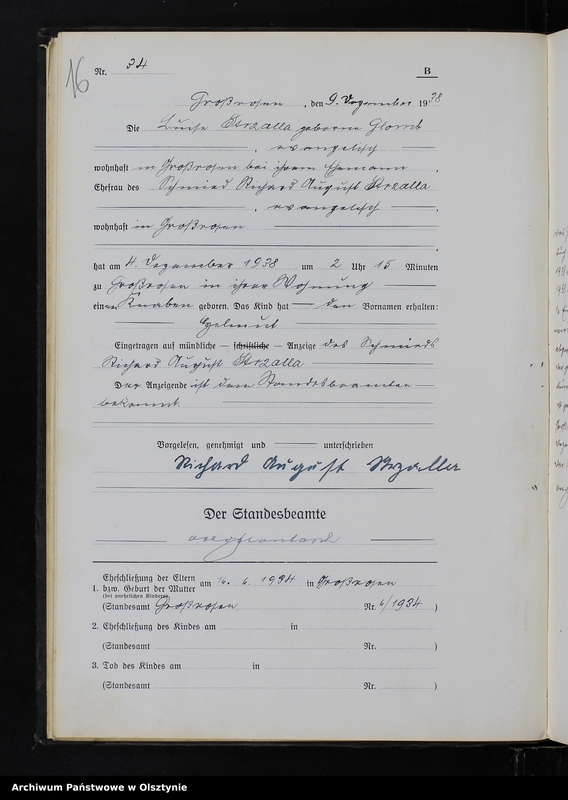 16
Nr. 34
B
Großrosen, den 9. Dezember 1938
Die Luise Strzalla geborene Glomb
, evangelisch
wohnhaft in Großrosen bei ihrem Ehemann,
Ehefrau des Schmied Richard August Strzalla
, evangelisch,
wohnhaft in Großrosen
hat am 4. Dezember 1938 um 2 Uhr 15 Minuten
zu Großrosen in ihrer Wohnung
einen Knaben geboren. Das Kind hat — den Vornamen erhalten:
Helmut
Eingetragen auf mündliche — schriftliche — Anzeige des Schmieds
Richard August Strzalla
Der Anzeigende ist dem Standesbeamten
bekannt.
Vorgelesen, genehmigt und — unterschrieben
Richard August Strzalla
Der Standesbeamte
Eheschließung der Eltern
1. bzw. Geburt der Mutter am 16. 6. 1934 in Großrosen
(bei unehelichen Kindern)
(Standesamt Großrosen Nr. 6/1934)
2. Eheschließung des Kindes am in
(Standesamt Nr. )
3. Tod des Kindes am in
(Standesamt Nr. )
Archiwum Państwowe w Olsztynie